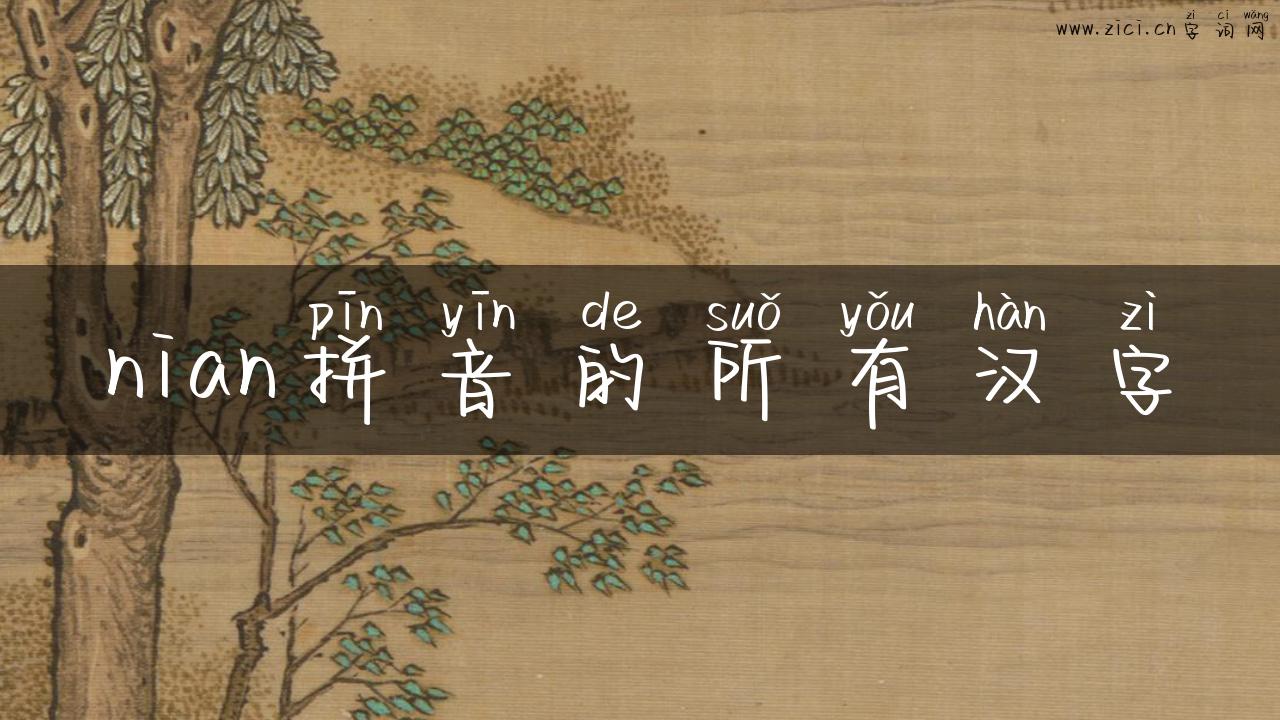 zì cí wǎng
www.zici.cn 字词网
pīn yīn de suǒ yǒu hàn zì
nian拼音的所有汉字